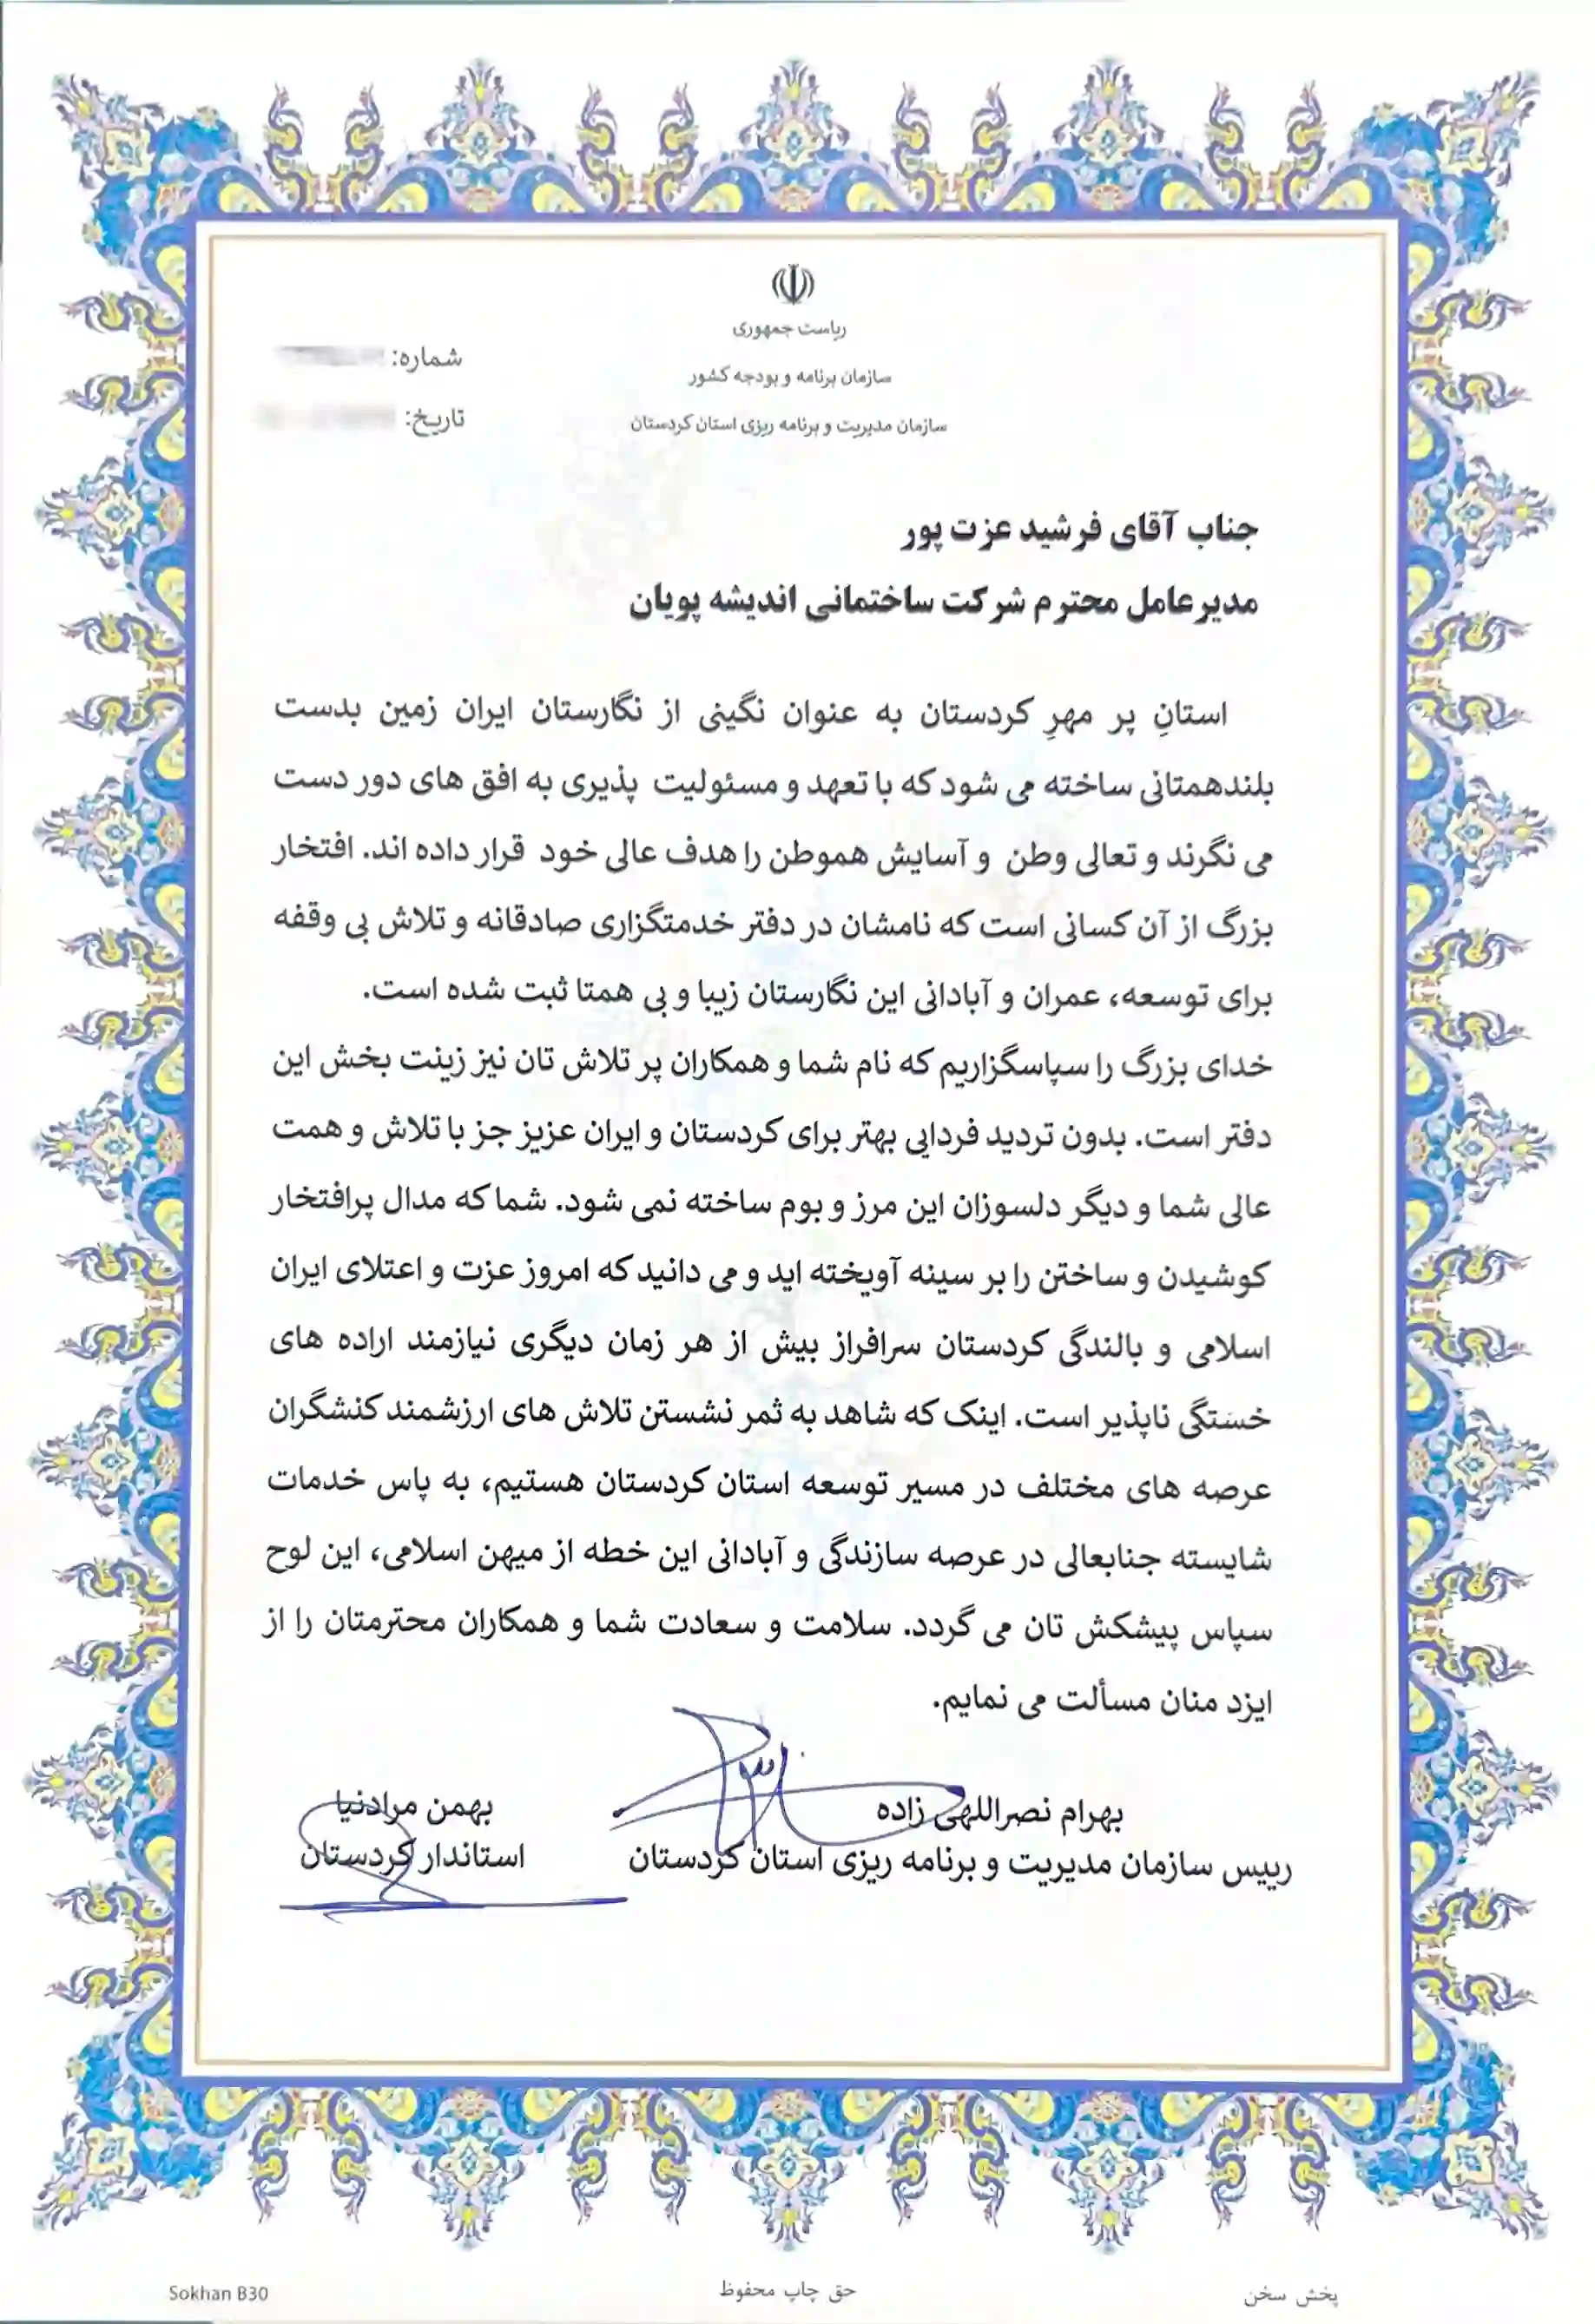 ریاست جمهوری
سازمان برنامه و بودجه کشور
سازمان مدیریت و برنامه ریزی استان کردستان
شماره:
تاریخ:
جناب آقای فرشید عزت پور
مدیرعامل محترم شرکت ساختمانی اندیشه پویان
استانِ پر مهرِ کردستان به عنوان نگینی از نگارستان ایران زمین بدست
بلندهمتانی ساخته می شود که با تعهد و مسئولیت پذیری به افق های دور دست
می نگرند و تعالی وطن و آسایش هموطن را هدف عالی خود قرار داده اند. افتخار
بزرگ از آن کسانی است که نامشان در دفتر خدمتگزاری صادقانه و تلاش بی وقفه
برای توسعه، عمران و آبادانی این نگارستان زیبا و بی همتا ثبت شده است.
خدای بزرگ را سپاسگزاریم که نام شما و همکاران پر تلاش تان نیز زینت بخش این
دفتر است. بدون تردید فردایی بهتر برای کردستان و ایران عزیز جز با تلاش و همت
عالی شما و دیگر دلسوزان این مرز و بوم ساخته نمی شود. شما که مدال پرافتخار
کوشیدن و ساختن را بر سینه آویخته اید و می دانید که امروز عزت و اعتلای ایران
اسلامی و بالندگی کردستان سرافراز بیش از هر زمان دیگری نیازمند اراده های
خستگی ناپذیر است. اینک که شاهد به ثمر نشستن تلاش های ارزشمند کنشگران
عرصه های مختلف در مسیر توسعه استان کردستان هستیم، به پاس خدمات
شایسته جنابعالی در عرصه سازندگی و آبادانی این خطه از میهن اسلامی، این لوح
سپاس پیشکش تان می گردد. سلامت و سعادت شما و همکاران محترمتان را از
ایزد منان مسألت می نمایم.
بهرام نصراللهی زاده
رییس سازمان مدیریت و برنامه ریزی استان کردستان
بهمن مرادنیا
استاندار کردستان
پخش سخن
حق چاپ محفوظ
Sokhan B30